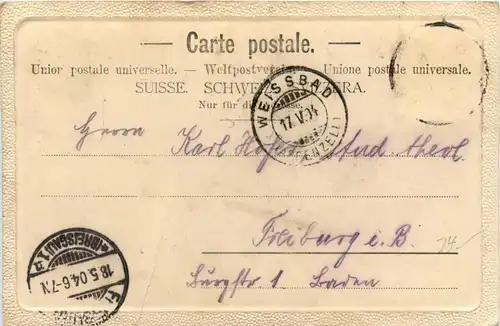 Carte postale.
Union postale universelle. — Weltpostverein — Unione postale universale.
SUISSE. SCHWEIZ. SVIZZERA.
Nur für die Adresse.
WEISSBAD
17.V.04
(APPENZELL)
Herrn Karl stud. theol.
Freiburg i. B.
Burgstr 1 Baden
74.-
(BREISGAU) 1
18.5.04.6-7N